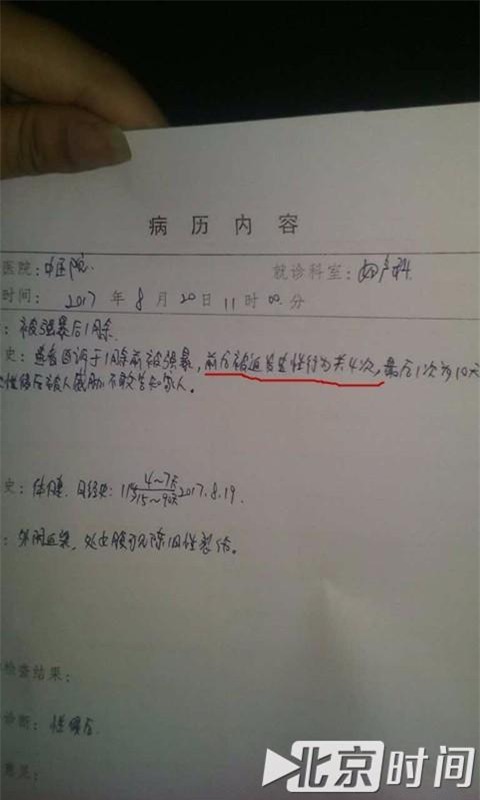 病历内容
医院：中医院 就诊科室：妇产科
时间：2017年8月20日11时00分
：被强暴后1月余
史：患者自诉于1月余前被强暴，前后被迫发生性行为共4次，最后1次为10天
性侵后被人威胁不敢告知家人。
史：体健 月经史：11岁 4~7天/15~90天 2017.8.19.
：外阴 处女膜可见陈旧性裂伤。
检查结果：
诊断：性侵后
意见：
北京时间